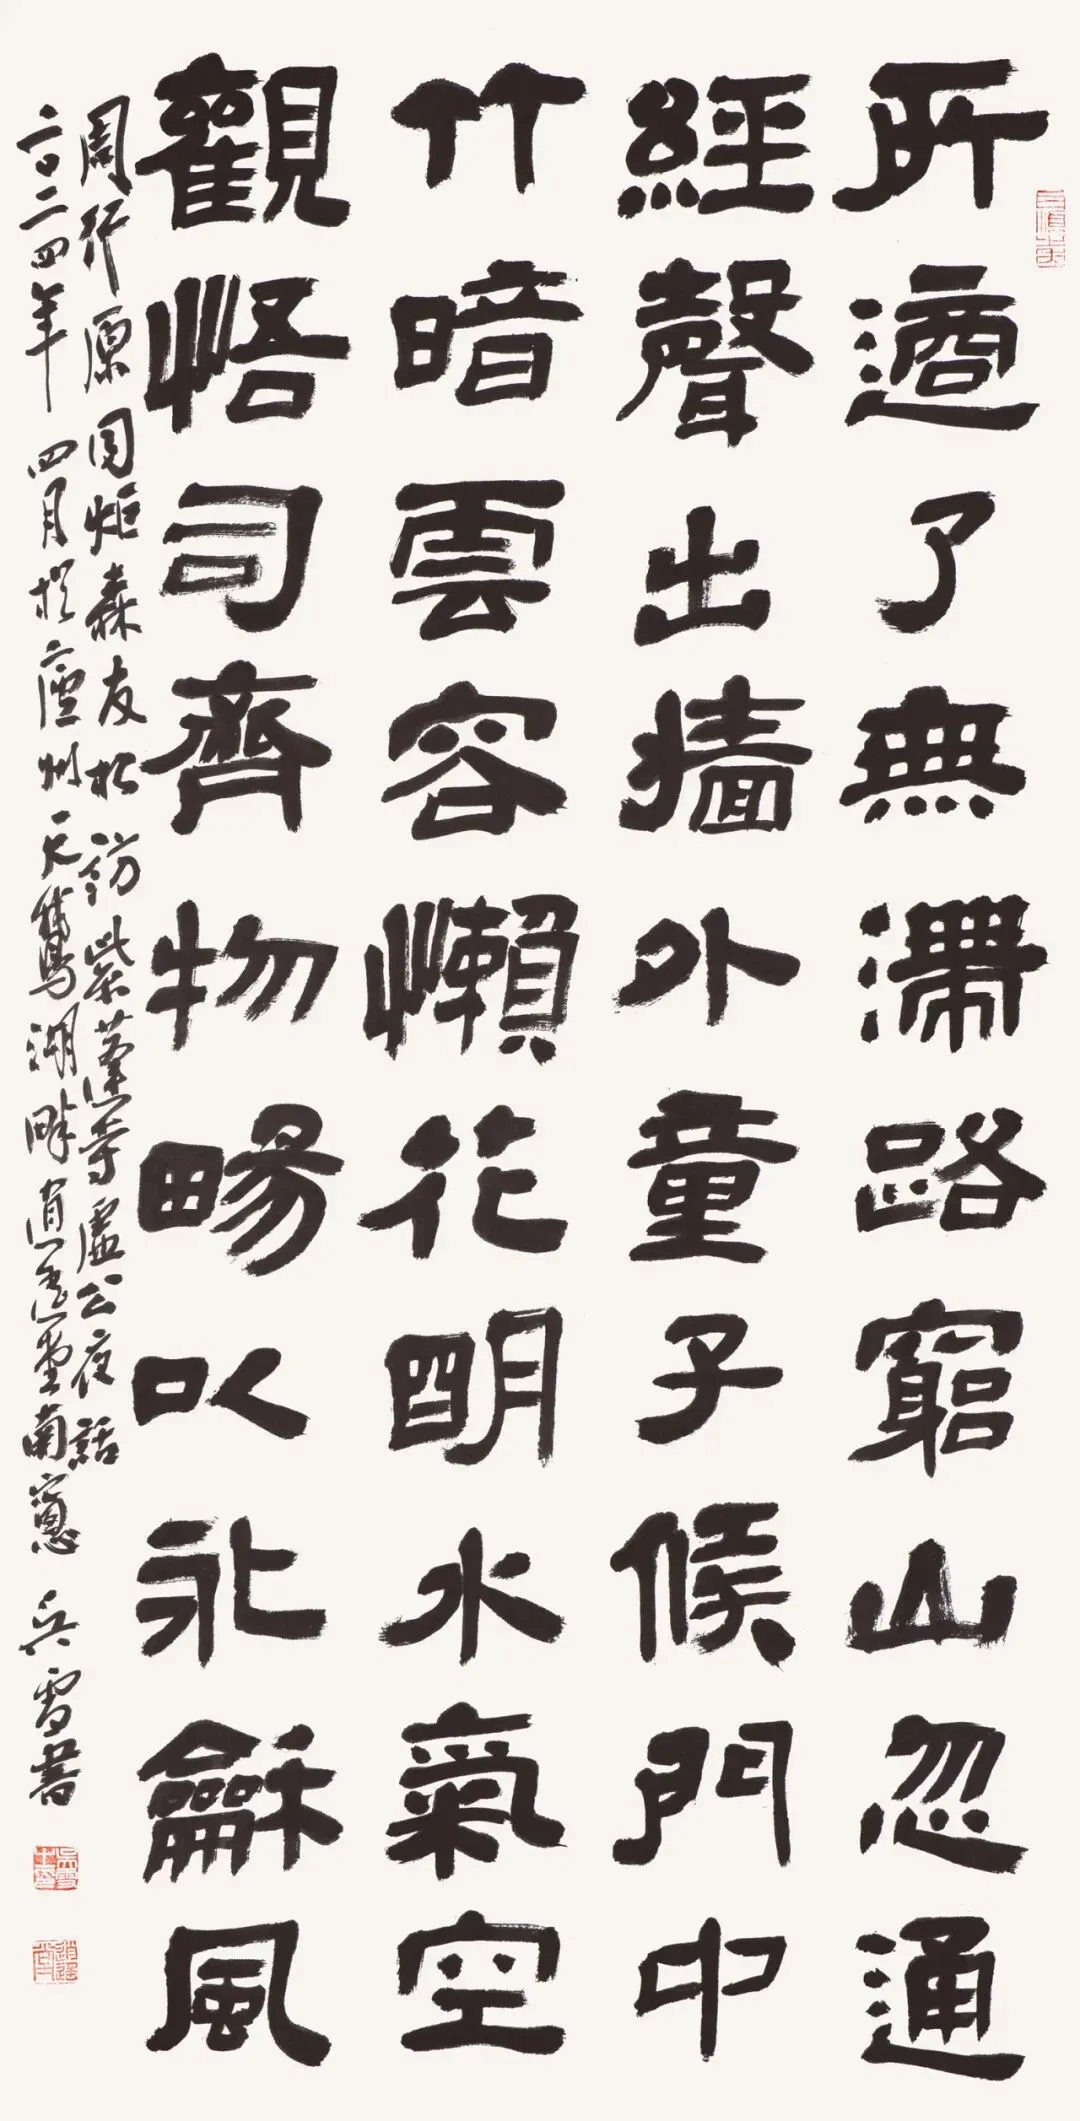 所適了無滯路窮山忽通
經聲出牆外童子候門中
竹暗雲容懶花明水氣空
觀悟司齊物畼以永龢風
周行原同炬森友松訪紫蓬寺虛公夜話
二〇二四年四月於廬州天鵝湖畔逍遙堂南窻吳雪書